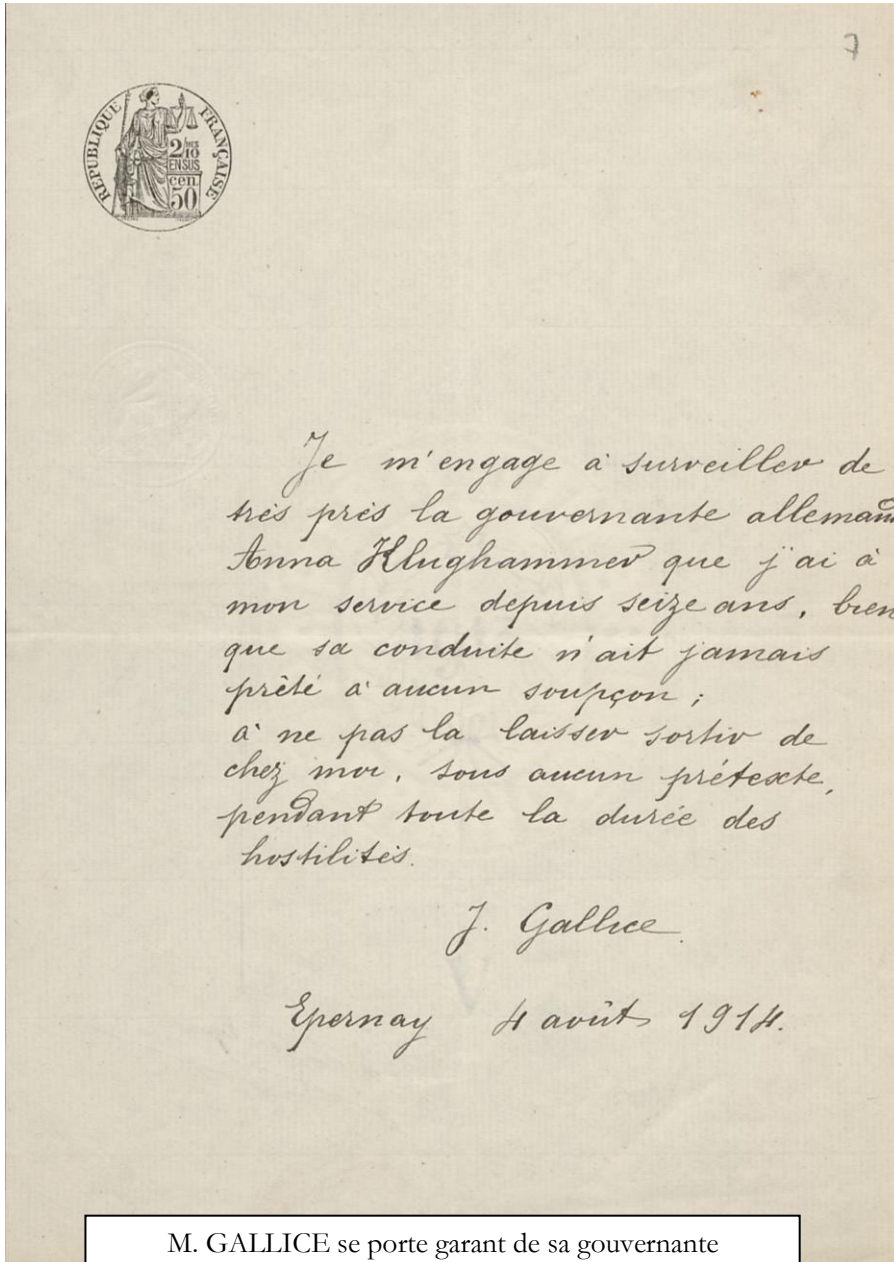 7
RÉPUBLIQUE FRANÇAISE
2/10 MES
EN SUS
cen.
50
Je m'engage à surveiller de
très près la gouvernante alleman
Anna Klughammer que j'ai à
mon service depuis seize ans, bien
que sa conduite n'ait jamais
prêté à aucun soupçon ;
à ne pas la laisser sortir de
chez moi, sous aucun prétexte,
pendant toute la durée des
hostilités.
J. Gallice.
Epernay 4 août 1914.
M. GALLICE se porte garant de sa gouvernante